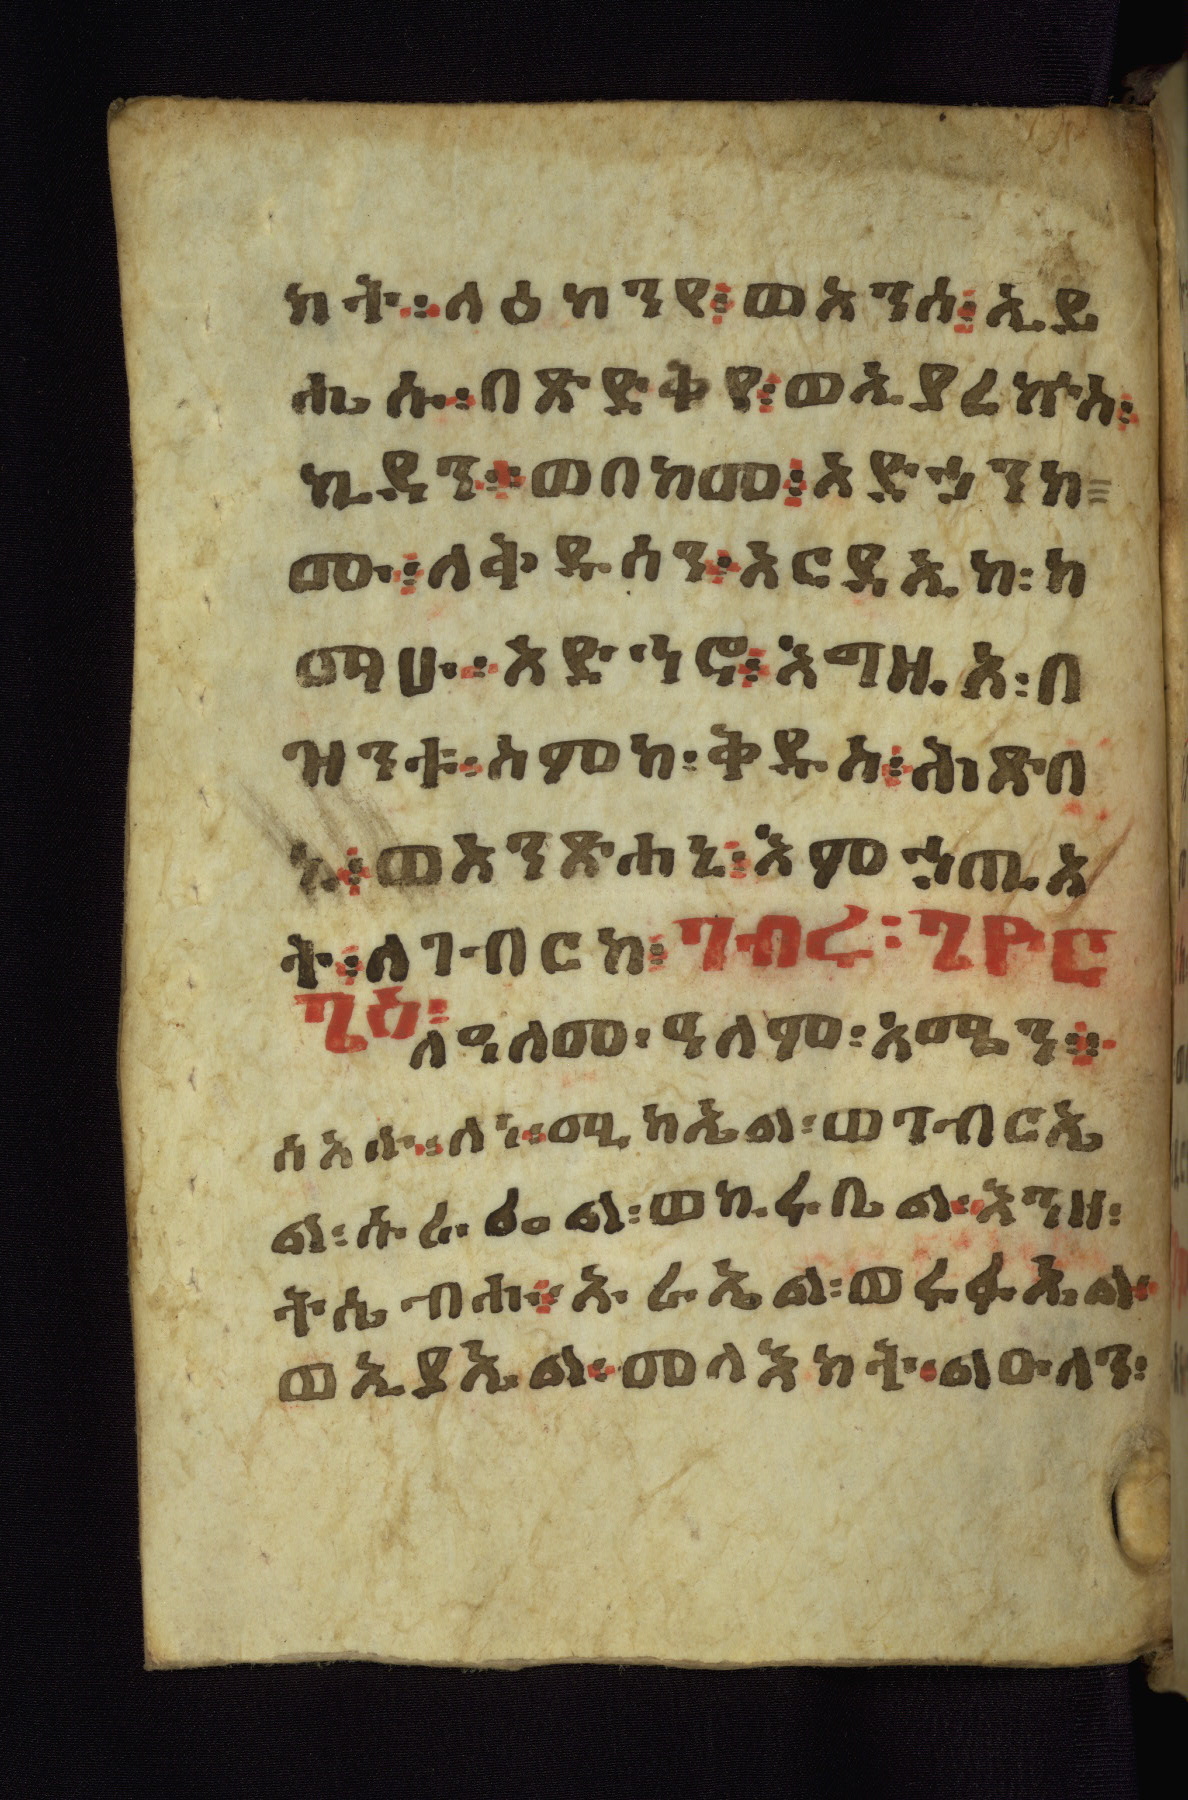 ክት፡ለዕክንየ፡ወእንሰ፡ኢይ
ሔሱ፡በጽድቅየ፡ወኢያፈኵስ፡
ኪዳን፡ወበከመ፡አድኃንከ
ሙ፡ለቅዱሳን፡አርዳኢከ፡ከ
ማሁ፡አድኅኖ፡እግዚአ፡በ
ዝንቱ፡ስምከ፡ቅዱስ፡ሕፅበ
ኒ፡ወአንጽሐኒ፡እምኃጢአ
ት፡ለገብርከ፡ገብረ፡ጊዮር
ጊስ፡
ለዓለመ፡ዓለም፡አሜን፡
ሰአሉ፡ለነ፡ሚካኤል፡ወገብርኤ
ል፡ሱራፌል፡ወኪሩቤል፡እንዘ፡
ትሴብሑ፡ኡራኤል፡ወሩፋኤል፡
ወኢያኤል፡መላእክት፡ልዑላን፡